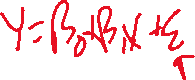 Y=β₀+β₁X+ε